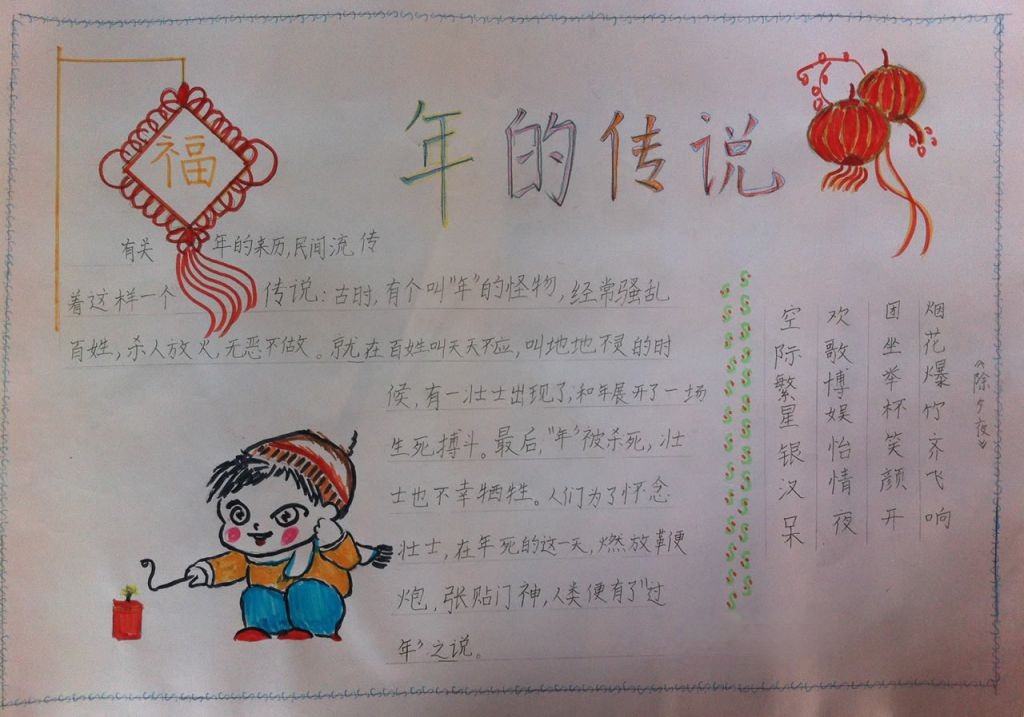 年的传说
福
有关年的来历,民间流传
着这样一个传说:古时,有个叫"年"的怪物,经常骚乱
百姓,杀人放火,无恶不做。就在百姓叫天天不应,叫地地不灵的时
候,有一壮士出现了,和年展开了一场
生死搏斗。最后,"年"被杀死,壮
士也不幸牺牲。人们为了怀念
壮士,在年死的这一天,燃放鞭
炮,张贴门神,人类便有了"过
年"之说。
《除夕夜》
烟花爆竹齐飞响
团坐举杯笑颜开
欢歌博娱怡情夜
空际繁星银汉呆